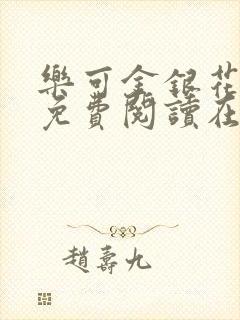 樂可金銀花
免費閱讀在
趙壽九